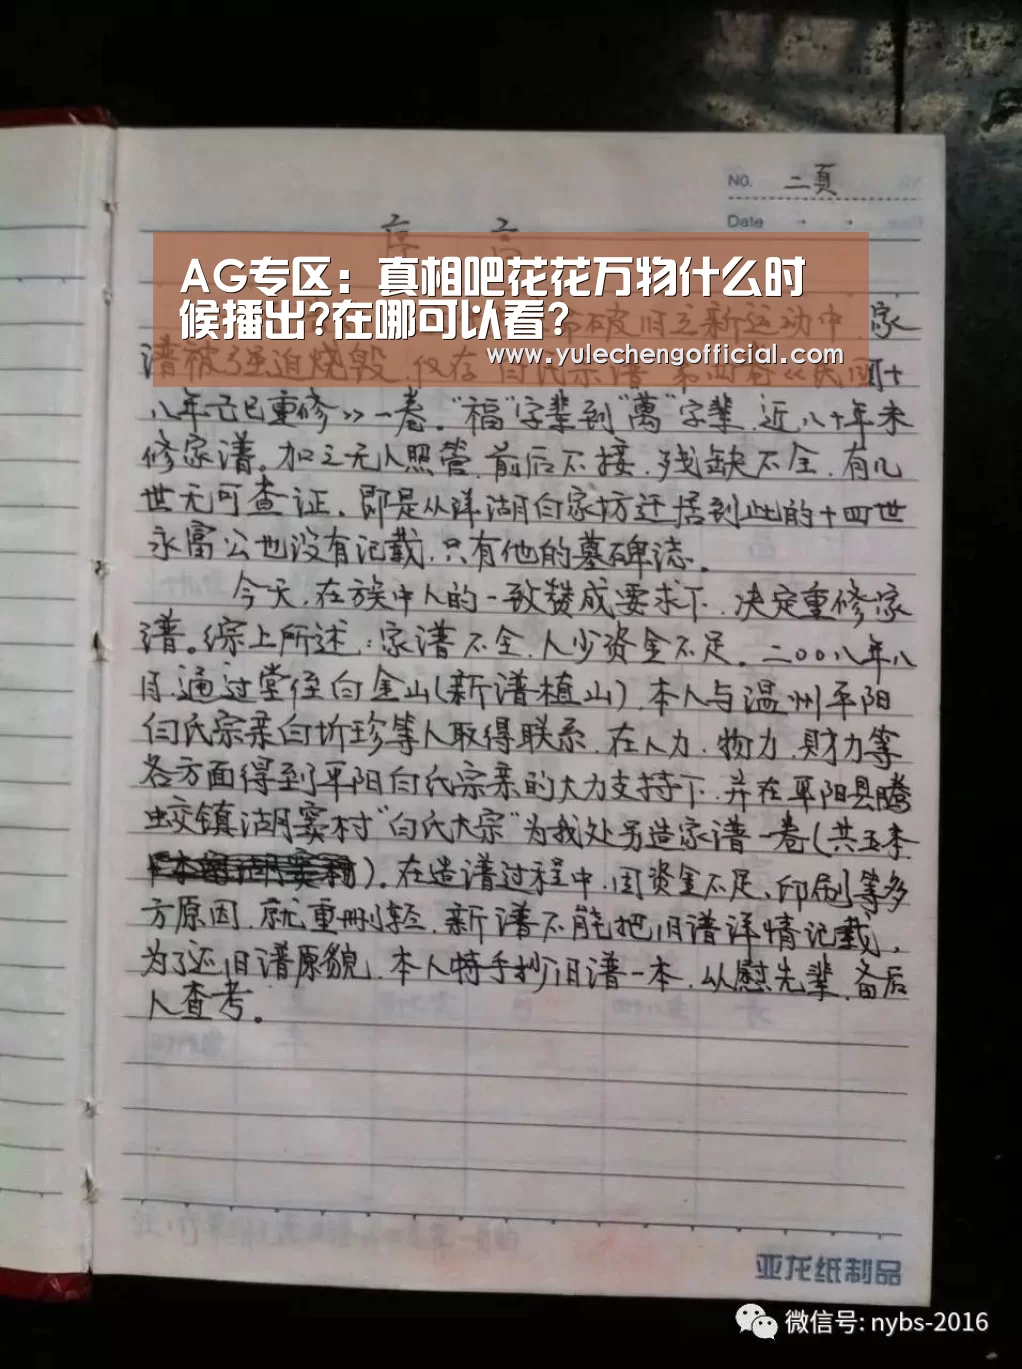 NO. 二頁
Date
序 言
AG专区：真相吧花花万物什么时
候播出?在哪可以看?
www.yulechengofficial.com
破旧立新运动中,家
谱被强迫烧毁,仅存 白氏宗谱 第四卷《民国十
八年己巳重修》一卷。“福”字辈到“萬”字辈,近八十年未
修家谱。加之无人照管,前后不接,残缺不全,有几
世无可查证。即是从洋湖白家坊迁居到此的十四世
永富公也没有记载,只有他的墓碑志。
今天,在族中人的一致赞成要求下,决定重修家
谱。综上所述:家谱不全,人少资金不足。二00八年八
月,通过堂侄白金山(新谱植山),本人与温州平阳
白氏宗亲白圻珍等人取得联系,在人力、物力、财力等
各方面得到平阳白氏宗亲的大力支持下,并在平阳县腾
蛟镇湖窦村“白氏大宗”为我处另造家谱一卷(共五本
)。在造谱过程中,因资金不足、印刷等多
方原因,就重删轻,新谱不能把旧谱详情记载,
为了还旧谱原貌,本人特手抄旧谱一本,以慰先辈,备后
人查考。
亚龙纸制品
微信号: nybs-2016